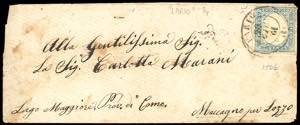 Alla Gentilissima Sig.
La Sig. Carlotta Marani
Lago Maggiore Prov. di Como. Maccagno per Lozzo